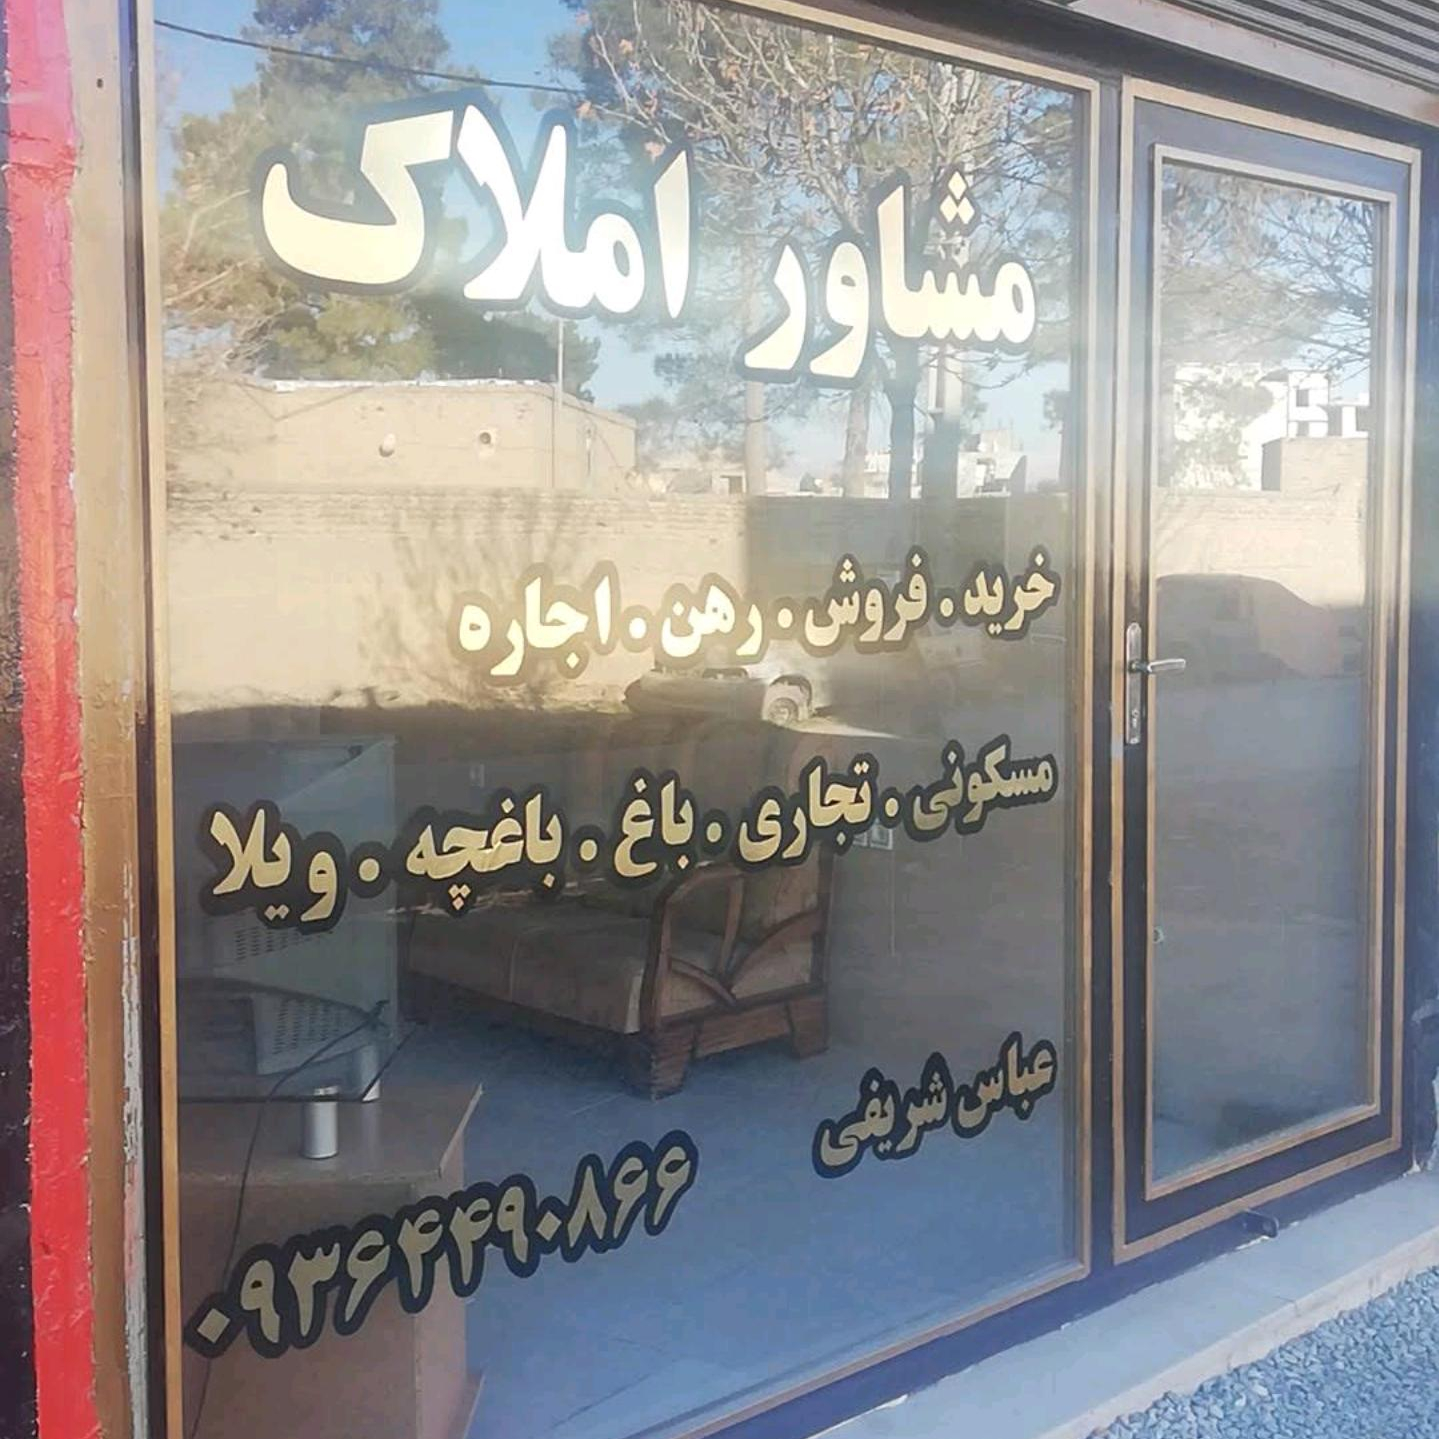 مشاور املاک
خرید . فروش . رهن . اجاره
مسکونی . تجاری . باغ . باغچه . ویلا
عباس شریفی
۰۹۳۶۴۴۹۰۸۶۶